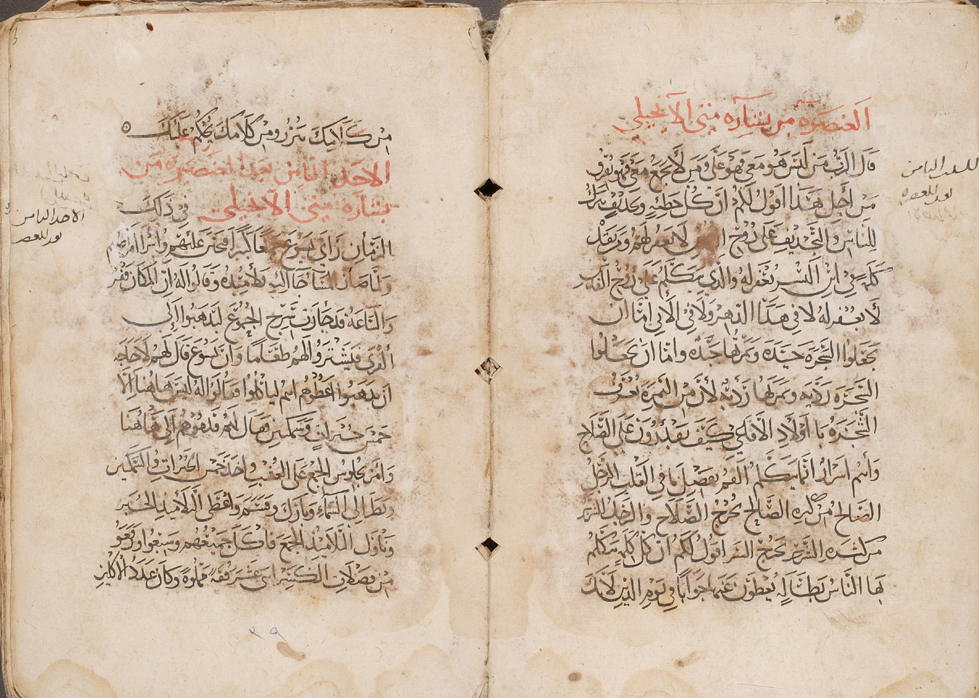 العنصرة من بشارة متى الانجيلي
قال الرب من ليس هو معي فهو علي ومن لا يجمع معي فهو يفرق
من اجل هذا اقول لكم ان كل خطية وتجديف يترك
للناس والتجديف على روح القدس لا يغفر لهم ومن يقل
كلمة في ابن البشر تغفر له والذي يتكلم على روح القدس
لا يغفر له لا في هذا الدهر ولا في الاتي اما ان
تجعلوا الشجرة جيدة وثمرتها جيدة واما ان تجعلوا
الشجرة ردية وثمرتها ردية لان من الثمرة تعرف
الشجرة يا اولاد الافاعي كيف تقدرون على الصلاح
وانتم اشرار انما يتكلم الفم بفضل ما في القلب الرجل
الصالح من كنزه الصالح يخرج الصلاح والرجل الشرير
من كنزه الشرير يخرج الشر اقول لكم ان كل كلمة يتكلم
بها الناس بطالة يعطون عنها جوابا في يوم الدين لانك
للعنصرة
من كلامك تتبرر ومن كلامك يحكم عليك
الاحد الثامن بعد العنصرة من
بشارة متى الانجيلي في ذلك
الزمان راى يسوع جمعا كبيرا فتحنن عليهم وابرا امراضهم
ولما صار المسا جا اليه تلاميذه وقالوا له ان المكان قفر
والساعة قد جازت سرح الجموع ليذهبوا الى
القرى فيشتروا لهم طعاما وان يسوع قال لهم لا حاجة
ان يذهبوا اعطوهم انتم لياكلوا فقالوا له ليس هاهنا الا
خمس خبزات وسمكتين فقال لهم قدموهم الي هاهنا
وامر بجلوس الجمع على العشب واخذ خمس الخبزات والسمكتين
ونظر الى السماء وبارك وقسم واعطى التلاميذ الخبز
وناول التلاميذ الجمع فاكل جميعهم وشبعوا ورفعوا
من فضلات الكسر اثني عشر قفة مملوة وكان عدد الاكلين
الاحد الثامن
بعد العنصر
٢٩